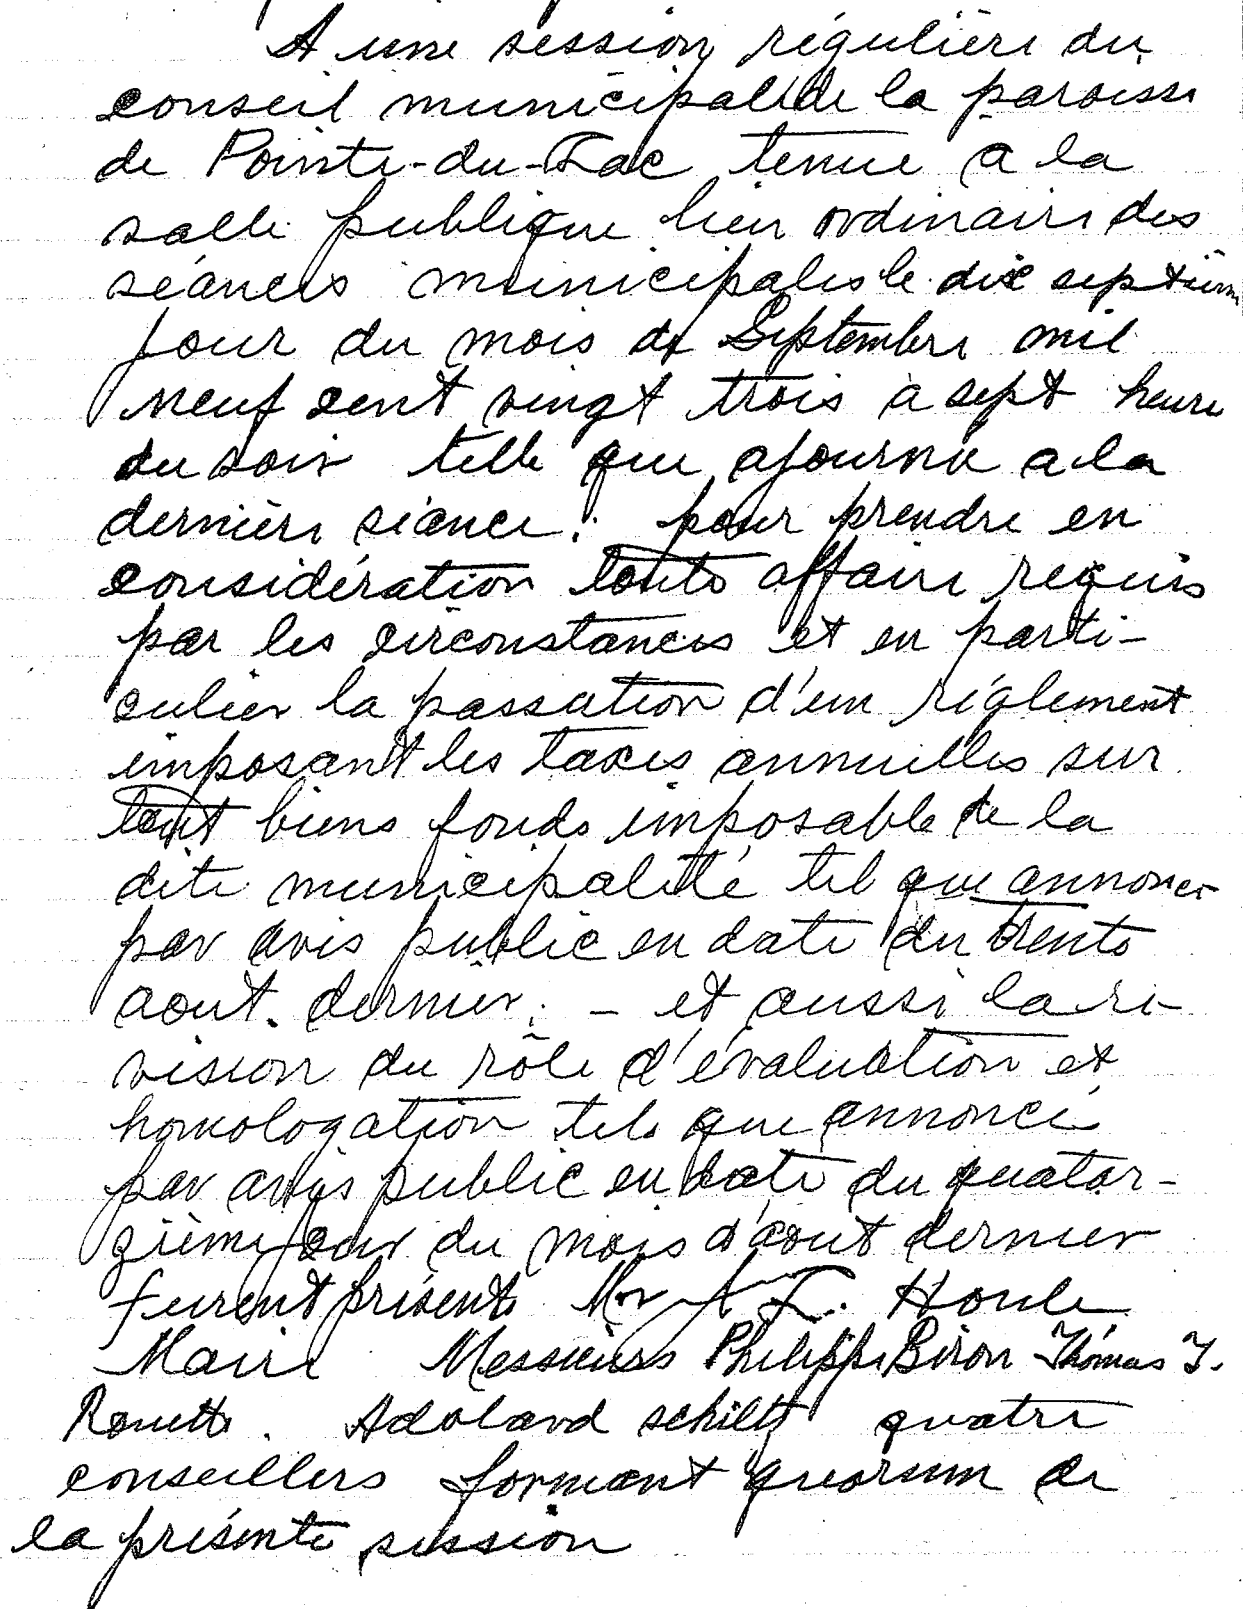 A une session régulière du
conseil municipal de la paroisse
de Pointe-du-Lac tenue a la
salle publique lieu ordinaire des
séances municipales le dix septième
jour du mois de Septembre mil
neuf cent vingt trois à sept heure
du soir telle que ajournée a la
dernière séance: pour prendre en
considération toute affaire requis
par les circonstances et en parti-
culier la passation d'un réglement
imposant les taxes annuelles sur
tout biens fonds imposable de la
dite municipalité tel que annoncer
par avis public en date du trente
aout. dernier. - et aussi la ré-
vision du rôle d'évaluation et
homologation tel que annoncé
par avis public en date du quator-
zième jour du mois d'aout dernier
furent présents Mr A. L. Houle
Maire Messieurs Philippe Biron Thomas J.
Rouette. Adolard schilt quatre
conseillers formant quorum de
la présente session